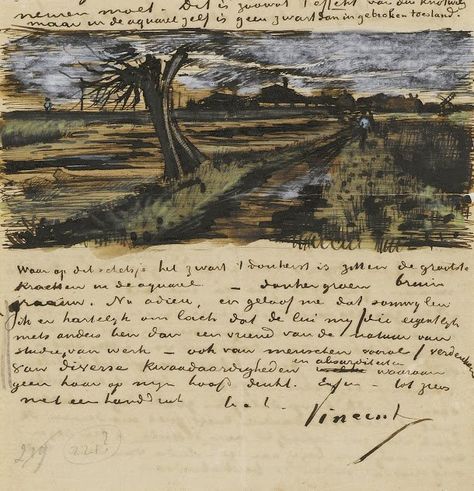 nemen moet. Dit is zoowat 't effekt van den
maar in de aquarel zelf is geen zwart dan in gebroken toestand.
Waar op dit schetsje het zwart 't donkerst is zitten de grootste
krachten in de aquarel – donkergroen bruin
graauw. Nu adieu, en geloof me dat somwylen
ik er hartelijk om lach dat de lui my (die eigentlyk
niets anders ben dan een vriend van de natuur van
studie, van werk – ook van menschen vooral) verdenken
van diverse kwaadaardigheden en absurditeiten waaraan
geen haar op mijn hoofd denkt. Enfin – tot ziens
met een handdruk t.à.t.
Vincent